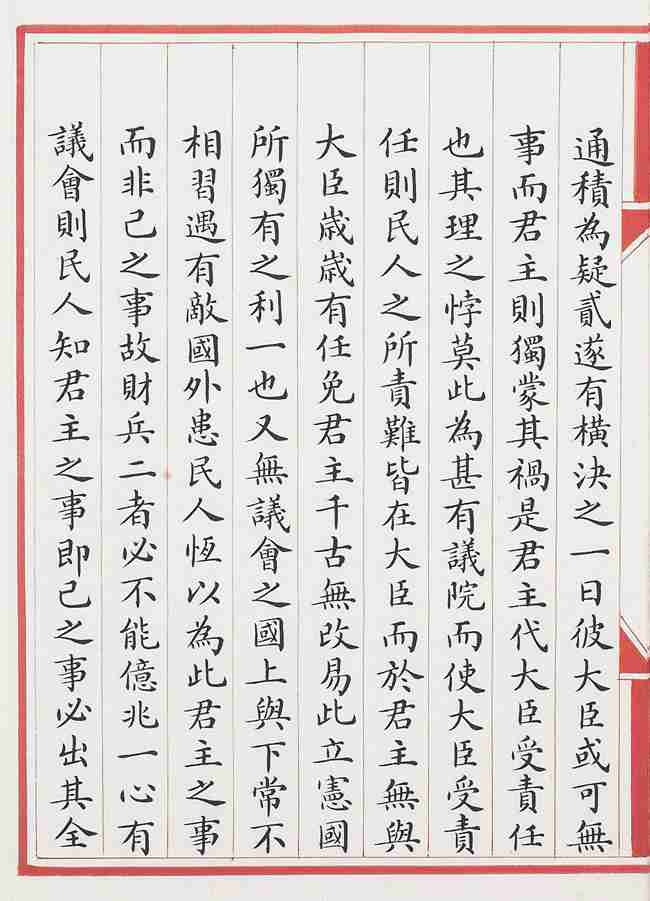 通積為疑貳遂有橫決之一日彼大臣或可無
事而君主則獨蒙其禍是君主代大臣受責任
也其理之悖莫此為甚有議院而使大臣受責
任則民人之所責難皆在大臣而於君主無與
大臣歲歲有任免君主千古無改易此立憲國
所獨有之利一也又無議會之國上與下常不
相習遇有敵國外患民人恆以為此君主之事
而非己之事故財兵二者必不能億兆一心有
議會則民人知君主之事即己之事必出其全